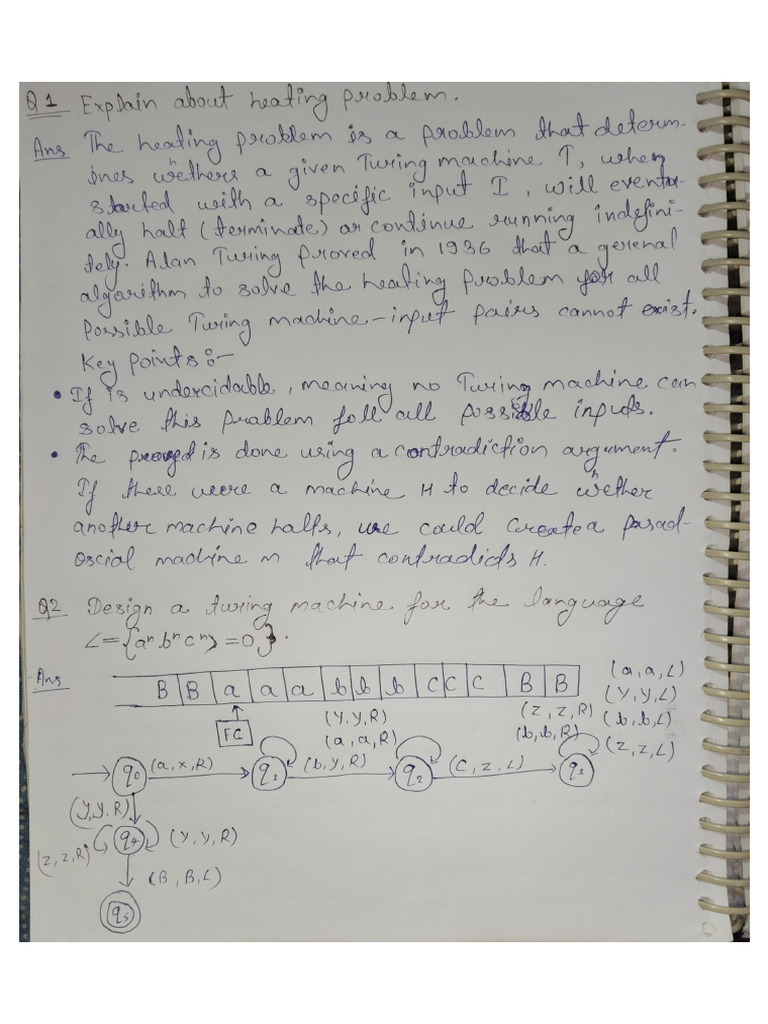 Q1 Explain about heating problem.
Ans The heating problem is a problem that determ-
ines whethers a given Turing machine T, when
started with a specific input I, will eventu-
ally halt (terminate) or continue running indefini-
tely. Alan Turing proved in 1936 that a gerenal
algorithm to solve the heating problem for all
possible Turing machine-input pairs cannot exist.
Key points:-
• If is undercidable, meaning no Turing machine can
solve this problem foll all possible inputs.
• The is done using a contradiction argument.
If there were a machine H to decide whether
another machine halts, we could create a parad-
oscial machine m that contradicts H.
Q2 Design a turing machine for the language
L={aⁿ bⁿ cⁿ) =0}.
Ans
B B a a a b b b c c c B B
(a, a, L)
(y, y, L)
(b, b, L)
(z, z, L)
FC
(y, y, R)
(a, a, R)
(z, z, R)
(b, b, R)
q0 (a, x, R) q1 (b, y, R) q2 (c, z, L) q3
(y, y, R)
(z, z, R) q4 (y, y, R)
(B, B, L)
q5